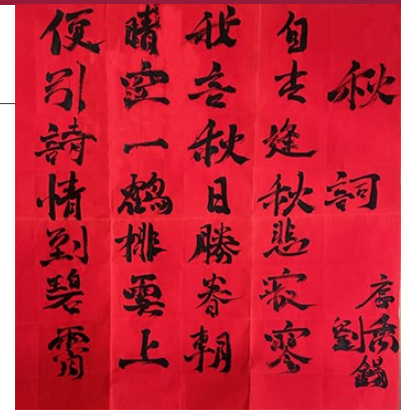 秋詞
唐劉禹錫
自古逢秋悲寂寥
我言秋日勝春朝
晴空一鶴排雲上
便引詩情到碧霄